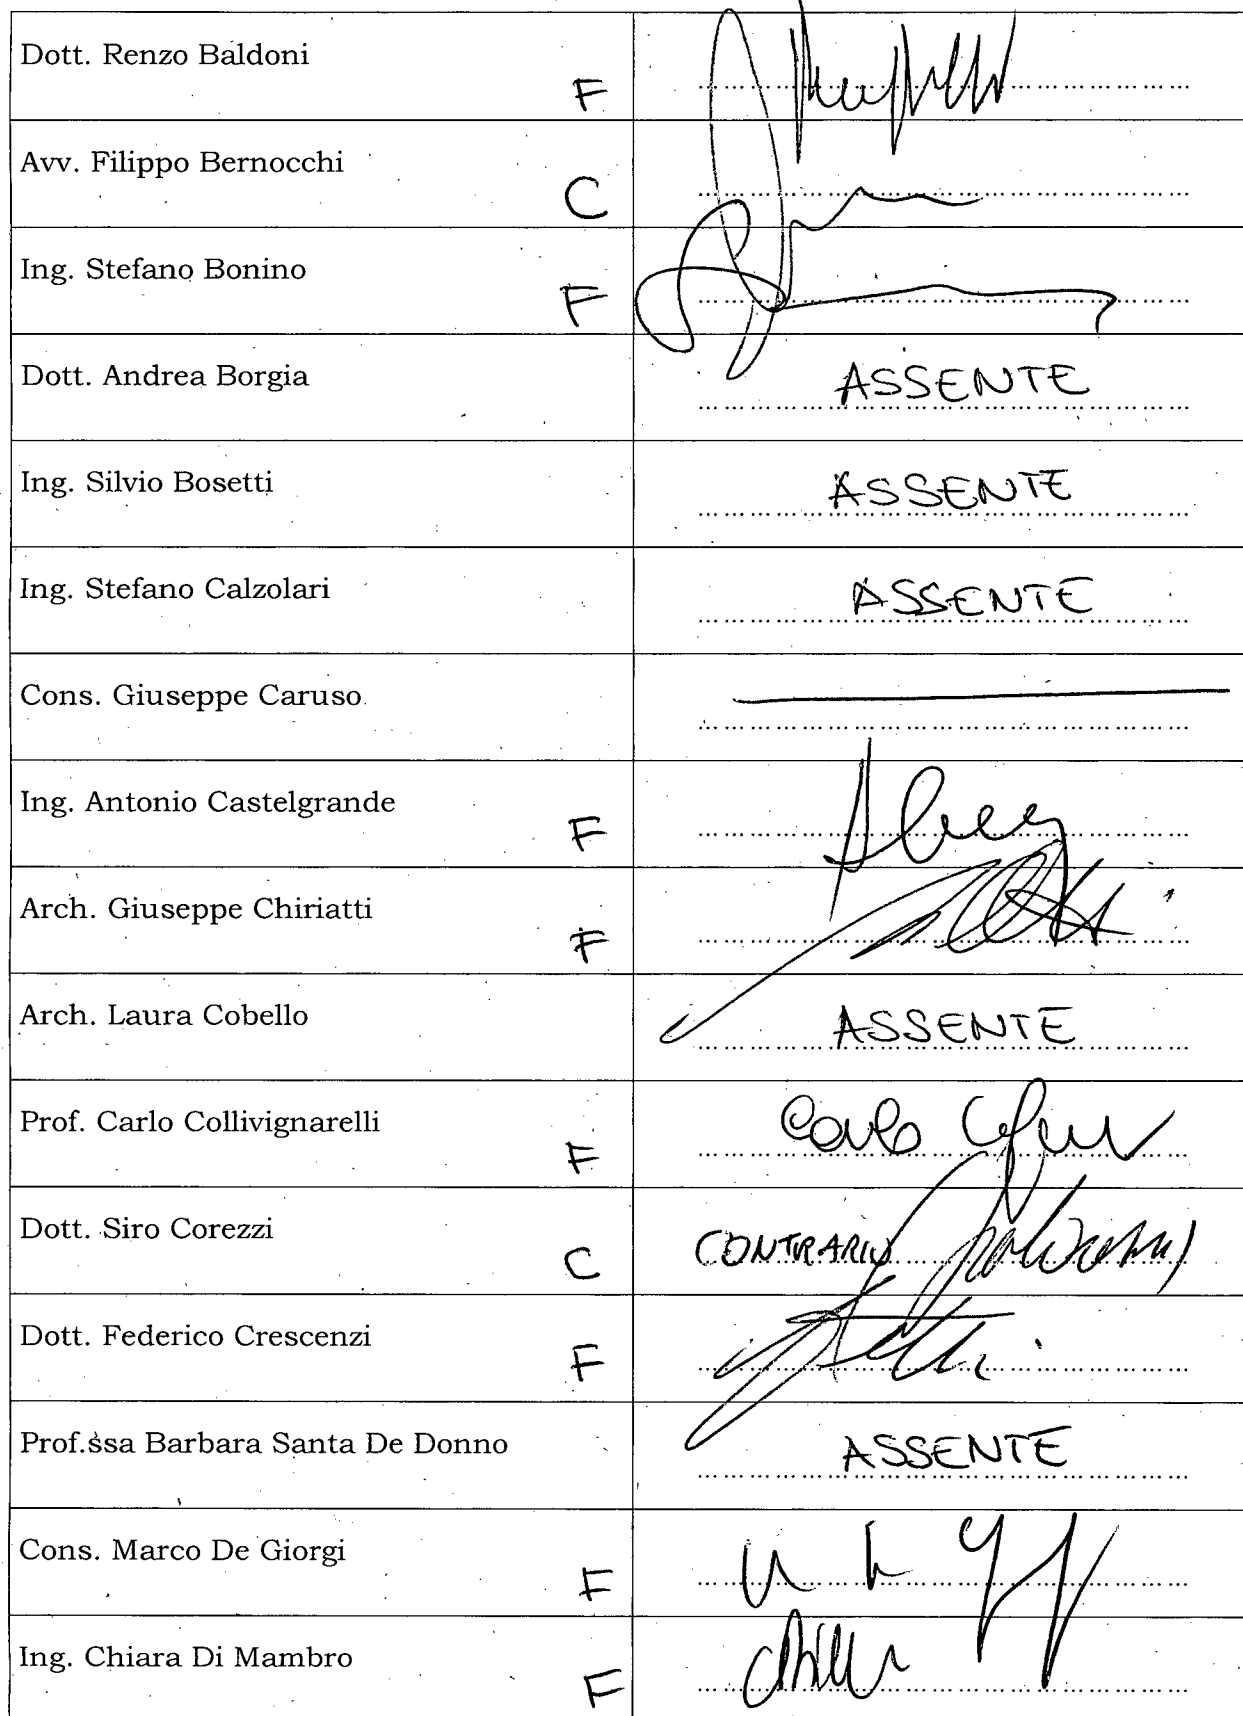 Dott. Renzo Baldoni
F
Avv. Filippo Bernocchi
C
Ing. Stefano Bonino
F
Dott. Andrea Borgia
ASSENTE
Ing. Silvio Bosetti
ASSENTE
Ing. Stefano Calzolari
ASSENTE
Cons. Giuseppe Caruso
Ing. Antonio Castelgrande
F
Arch. Giuseppe Chiriatti
F
Arch. Laura Cobello
ASSENTE
Prof. Carlo Collivignarelli
F
Carlo
Dott. Siro Corezzi
C
CONTRARIO
Dott. Federico Crescenzi
F
Prof.ssa Barbara Santa De Donno
ASSENTE
Cons. Marco De Giorgi
F
Ing. Chiara Di Mambro
F